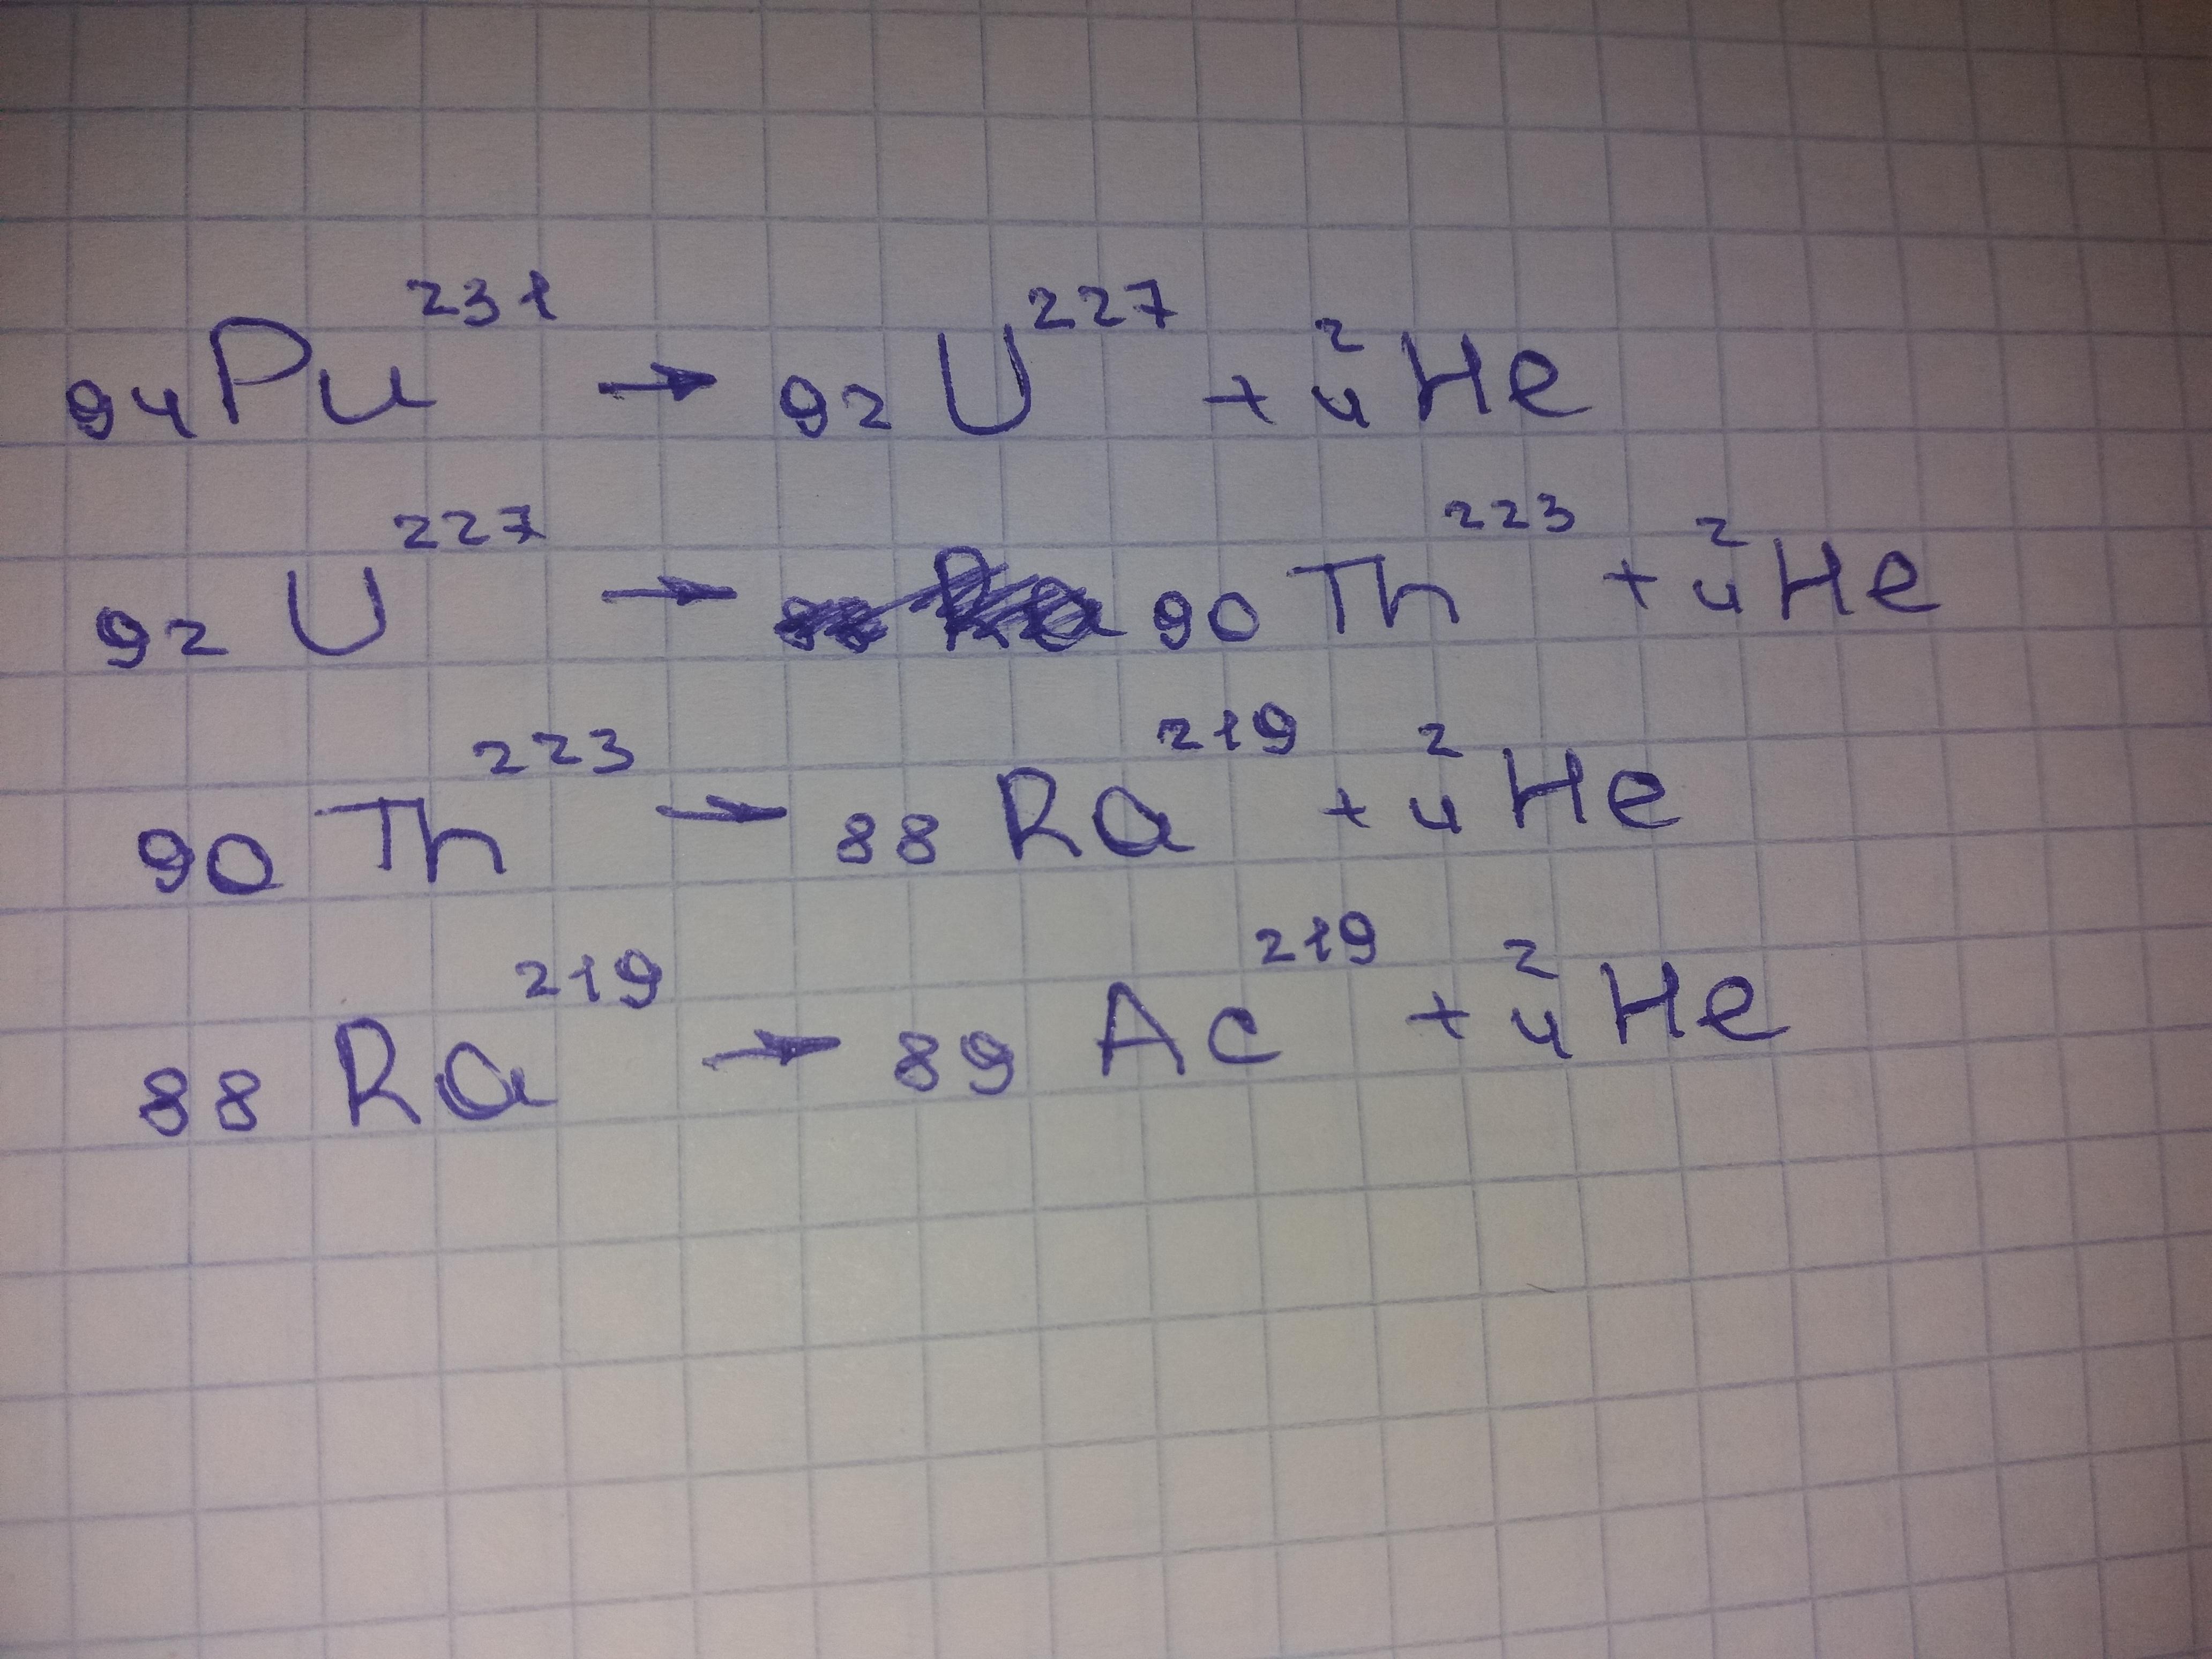 ₉₄Pu²³¹ → ₉₂U²²⁷ + ²₄He
₉₂U²²⁷ → ₉₀Th²²³ + ²₄He
₉₀Th²²³ → ₈₈Ra²¹⁹ + ²₄He
₈₈Ra²¹⁹ → ₈₉Ac²¹⁹ + ²₄He